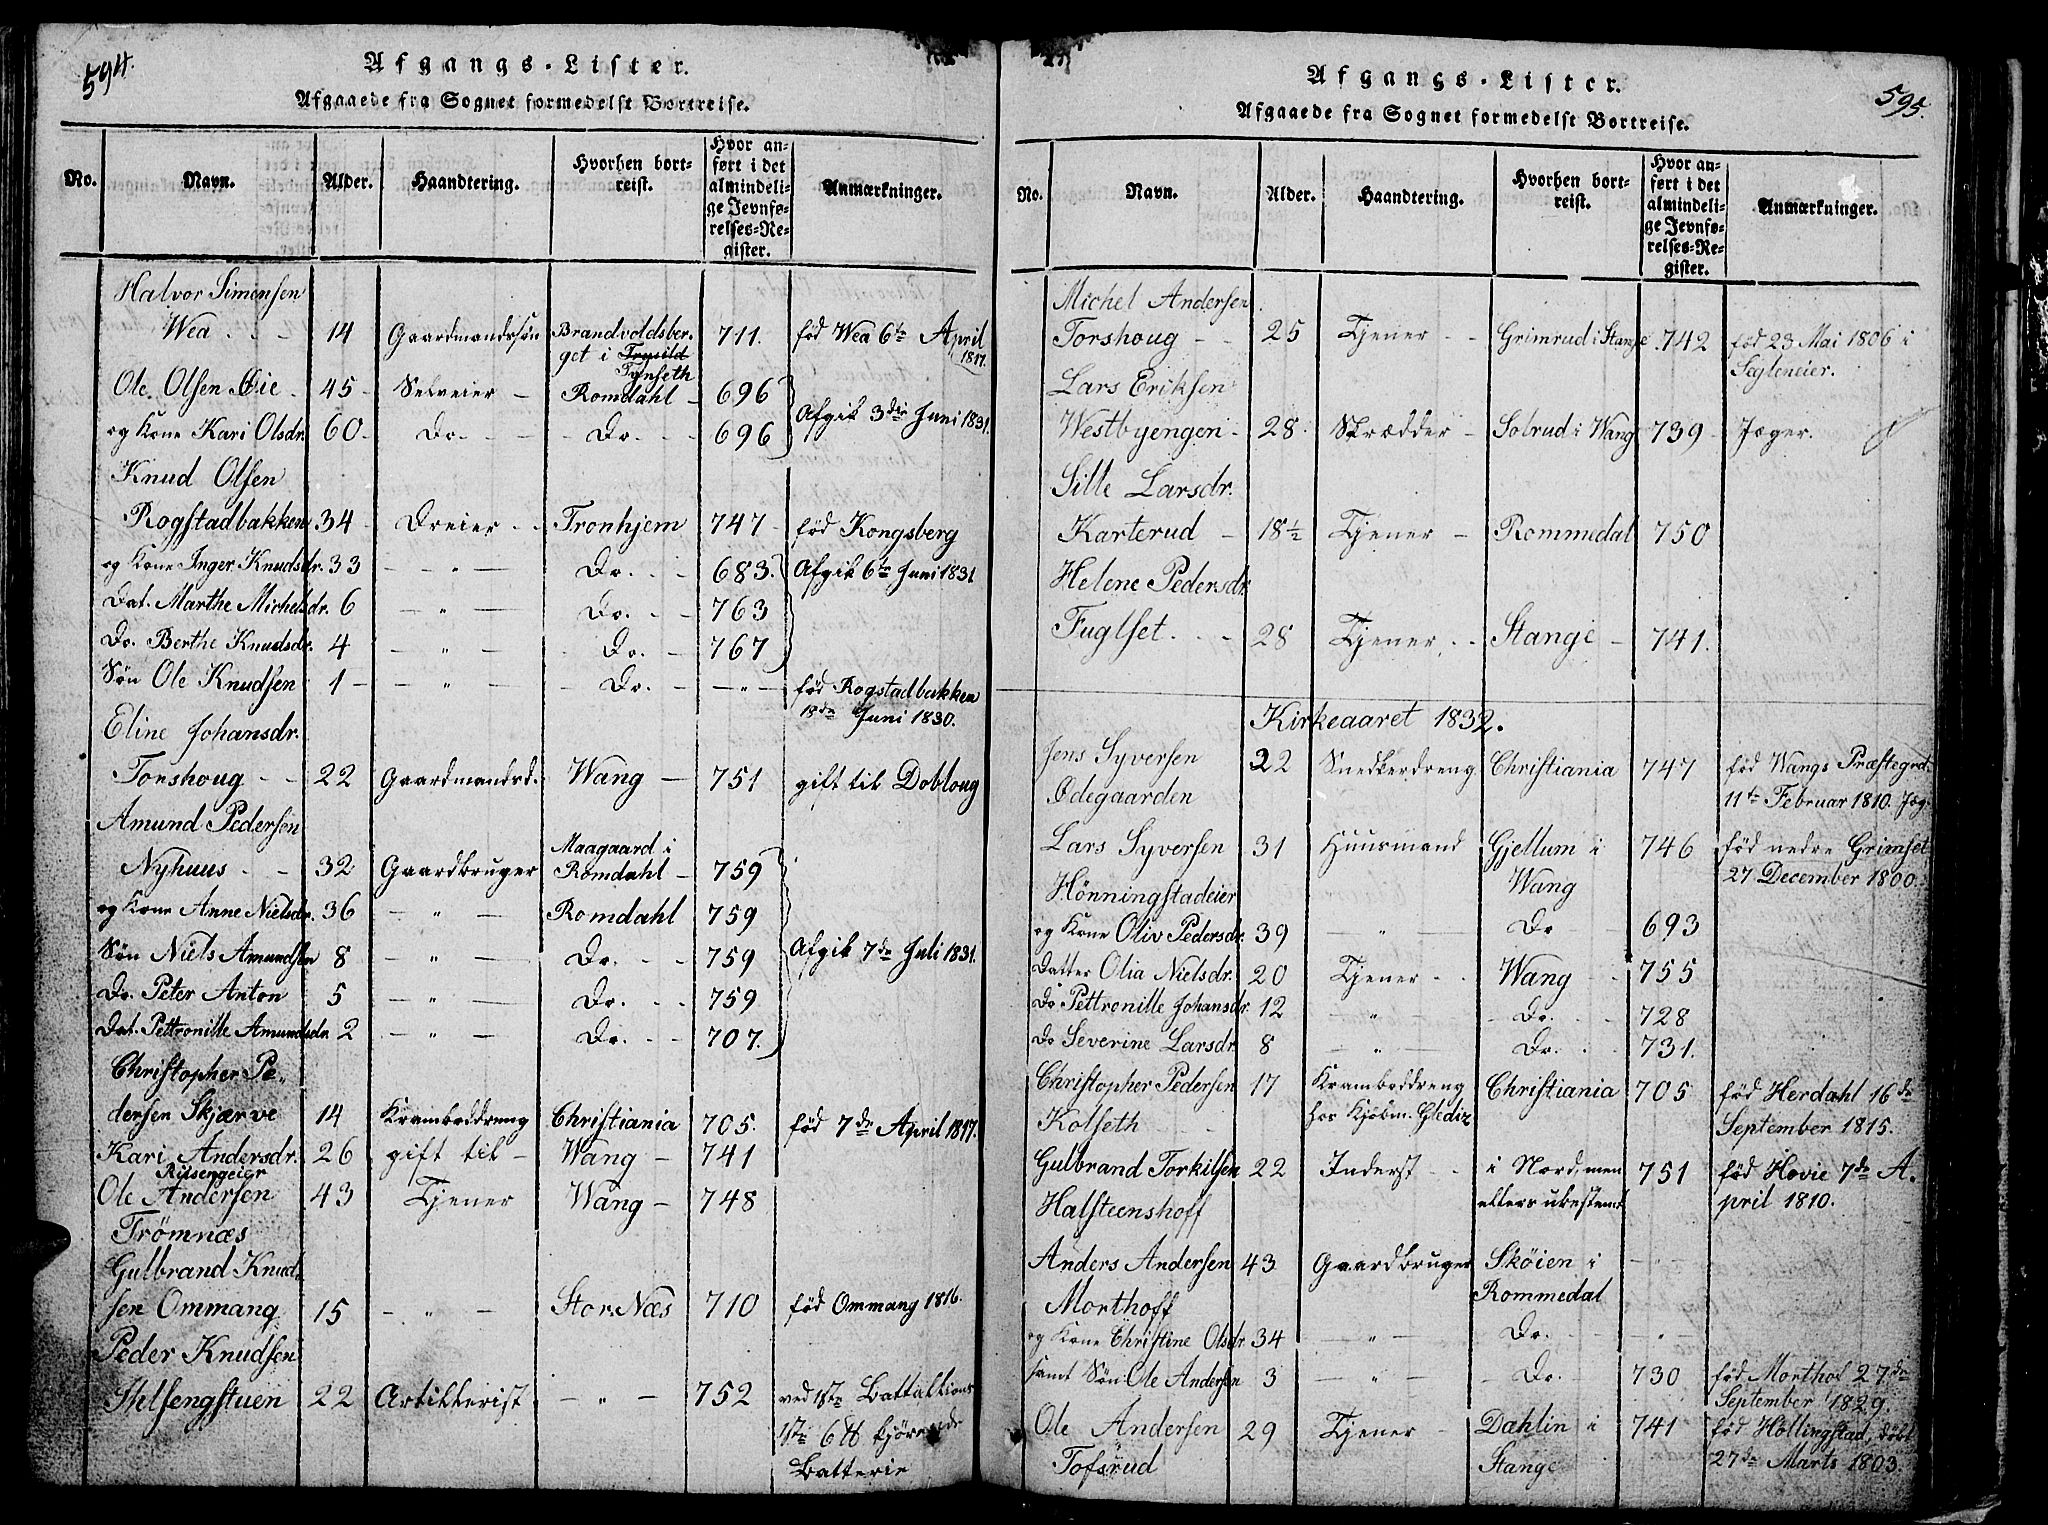 594.
Afgangs-Lister.
Afgaaede fra Sognet formedelst Bortreise.
No. Navn. Alder. Haandtering. Hvorhen bortreist. Hvor anført i det almindelige Jevnførelses-Register. Anmærkninger.
Halvor Simensen
Wea - - 14 Gaardmandssøn Brandvoldsber- 711. fød Wea 6te April
get i Trysild 1817.
Tynseth
Ole Olsen Øie - 45 - Selveier - Romdahl - 696
Afgik 3die Juni 1831.
og Kone Kari Olsdr. 60 - Do. - - Do. - 696
Knud Olsen
Rogstadbakken 34 - Dreier - - Tronhjem 747 - fød Kongsberg
og Kone Inger Knudsdr. 33 - " - Do. - - 683. Afgik 6te Juni 1831
Dat. Marthe Michelsdr. 6 - " - Do. - - 763
Do. Berthe Knudsdr. 4 - " - Do. - 767
Søn Ole Knudsen 1 - - " - - Do. - - " - fød Rogstadbakken
18de Juni 1830.
Eline Johansdr.
Torshoug - - 22 Gaardmandsd. Wang - 751 gift til Dobloug
Amund Pedersen
Maagaard i
Nyhuus - - 32 Gaardbruger Romdahl - 759
og Kone Anne Nielsdr. 36 - " - Romdahl 759
Søn Niels Amundsen 8 - " - Do. - - 759 Afgik 7de Juli 1831.
Do. Peter Anton 5 - " - Do. - - 759
Dat. Pettronille Amundsdr. 2 - " - Do. - - 707.
Christopher Pe-
dersen Skjærve 14 Kramboddreng Christiania 705. fød 7de April 1817.
Kari Andersdr. 26 gift til - Wang - 741
Riisengeier
Ole Andersen 43 Tjener Wang - 748
Trømnæs
Gulbrand Knud-
sen Ommang 15 - " - Stor-Næs 710 fød Ommang 1816.
Peder Knudsen
Stelsengstuen 22 Artillerist - " - 752 ved 1ste Battallions
1ste 6 ℔ kjørende
Batterie
595.
Afgangs-Lister.
Afgaaede fra Sognet formedelst Bortreise.
No. Navn. Alder. Haandtering. Hvorhen bortreist. Hvor anført i det almindelige Jevnførelses-Register. Anmærkninger.
Michel Andersen
Torshoug - - 25 Tjener - - Grimrud i Stange 742 fød 23 Mai 1806 i
Lars Eriksen
Westbyengen - 28. Skrædder - Solrud i Wang 739 - Jæger.
Sille Larsdr.
Karterud - 18½ Tjener - Rommedal 750
Helene Pedersdr.
Fuglset. - - 28 Tjener - - Stange - 741.
Kirkeaaret 1832.
Jens Syversen 22 Snedkerdreng Christiania 747 fød Wangs Præstegjed.
Ødegaarden 11te Februar 1810. Jæg.
Lars Syversen 31 Huusmand Gjellum i 746 fød nedre Grimset
Hönningstadeier Wang 27 December 1800.
og Kone Oliv Pedersdr. 39 - " - Do 693
Datter Olia Nielsdr. 20 Tjener - - Wang - 755
Do Pettronille Johansdr. 12 - " - - Do. - - 728
Do Severine Larsdr. 8 - " - Do. - 731.
Christopher Pedersen 17 Kramboddreng Christiania 705 fød Herdahl 16de
Kolseth hos Kjøbm. Glediz September 1815.
Gulbrand Torkilsen 22 Inderst - - i Nord, men 751 fød Hovie 7de A-
Halsteenshoff ellers ubestemt pril 1810.
Anders Andersen 43 Gaardbruger Skøien i - " -
Morthoff Rommedal
og Kone Christine Olsdr. 34 - " - Do. - - " -
samt Søn Ole Andersen 3 - " - - Do. - 730 fød Morthof 27de
September 1829.
Ole Andersen 29 Tjener - Dahlin i 741 fød Hollingstad, døbt
Tofsrud Stange 27de Marts 1803.